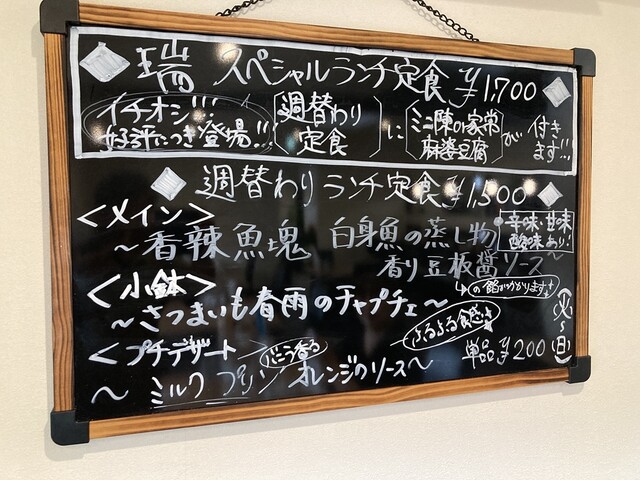 瑞 スペシャルランチ定食 ¥1,700
イチオシ!!!
好評につき登場!!!
週替わり
定食
に
ミニ陳の家常
麻婆豆腐
が
付き
ます!!!
週替わり ランチ定食 ¥1,500
<メイン>
~香辣魚塊 白身魚の蒸し物
香り豆板醤ソース~
辛味・甘味
酸味あり!
の餡がかかります
<小鉢>
~さつまいも春雨のチャプチェ~
<プチデザート>
バニラ香る
ぷるぷる食感
~ミルクプリン オレンジのソース~
単品¥200
(火)~(日)